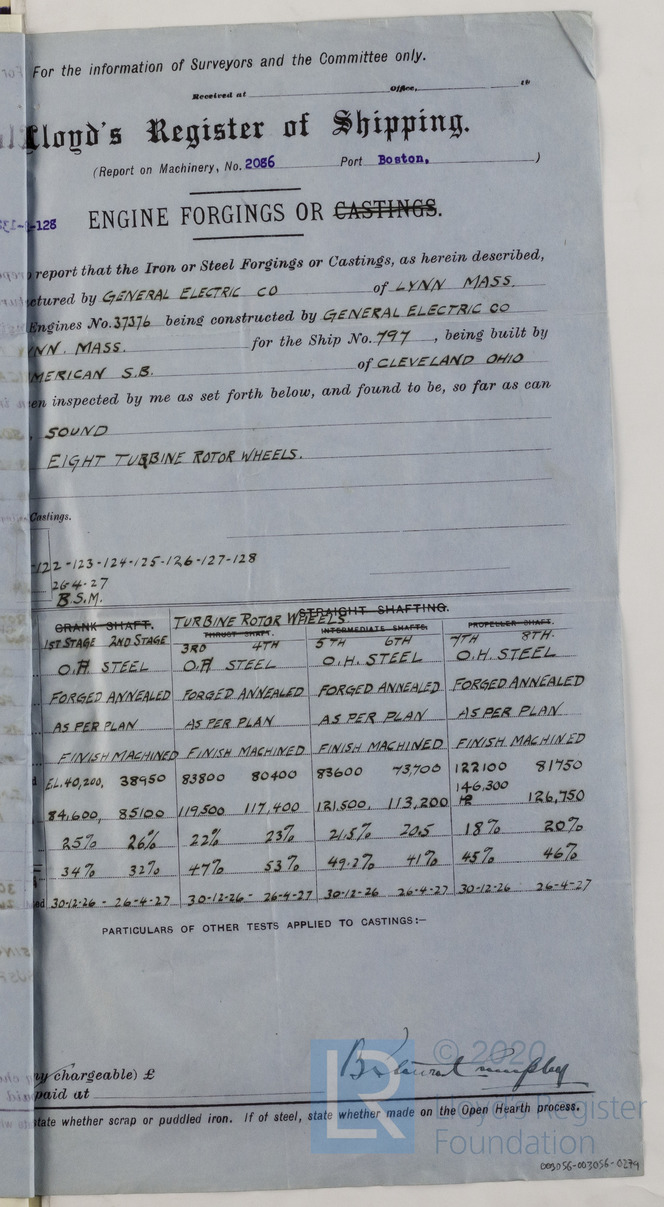 For the information of Surveyors and the Committee only.
Received at Office, 19
Lloyd's Register of Shipping.
(Report on Machinery, No. 2086 Port Boston, )
-128
ENGINE FORGINGS OR CASTINGS.
report that the Iron or Steel Forgings or Castings, as herein described,
ctured by GENERAL ELECTRIC CO of LYNN MASS.
Engines No. 37376 being constructed by GENERAL ELECTRIC CO
NN. MASS. for the Ship No. 797, being built by
MERICAN S.B. of CLEVELAND OHIO
en inspected by me as set forth below, and found to be, so far as can
, SOUND
EIGHT TURBINE ROTOR WHEELS.
Castings.
-122-123-124-125-126-127-128
26-4-27
B.S.M.
CRANK SHAFT. TURBINE ROTOR WHEELS STRAIGHT SHAFTING.
THRUST SHAFT. INTERMEDIATE SHAFTS. PROPELLER SHAFT.
1ST STAGE 2ND STAGE 3RD 4TH 5TH 6TH 7TH 8TH.
O.H. STEEL O.H STEEL O.H. STEEL O.H. STEEL
FORGED ANNEALED FORGED ANNEALED FORGED ANNEALED FORGED ANNEALED
AS PER PLAN AS PER PLAN AS PER PLAN AS PER PLAN
FINISH MACHINED FINISH MACHINED FINISH MACHINED FINISH MACHINED
EL. 40,200, 38950 83800 80400 83600 73,700 122100 81750
84,600, 85100 119,500 117,400 121,500, 113,200 146,300 126,750
25% 26% 22% 23% 21.5% 20.5 18% 20%
34% 32% 47% 53% 49.2% 41% 45% 46%
ed 30-12-26 - 26-4-27 30-12-26 - 26-4-27 30-12-26 26-4-27 30-12-26 26-4-27
PARTICULARS OF OTHER TESTS APPLIED TO CASTINGS:—
ny chargeable) £
paid at
state whether scrap or puddled iron. If of steel, state whether made on the Open Hearth process.
© 2020
LR
Lloyd's Register
Foundation
003056-003056-0279